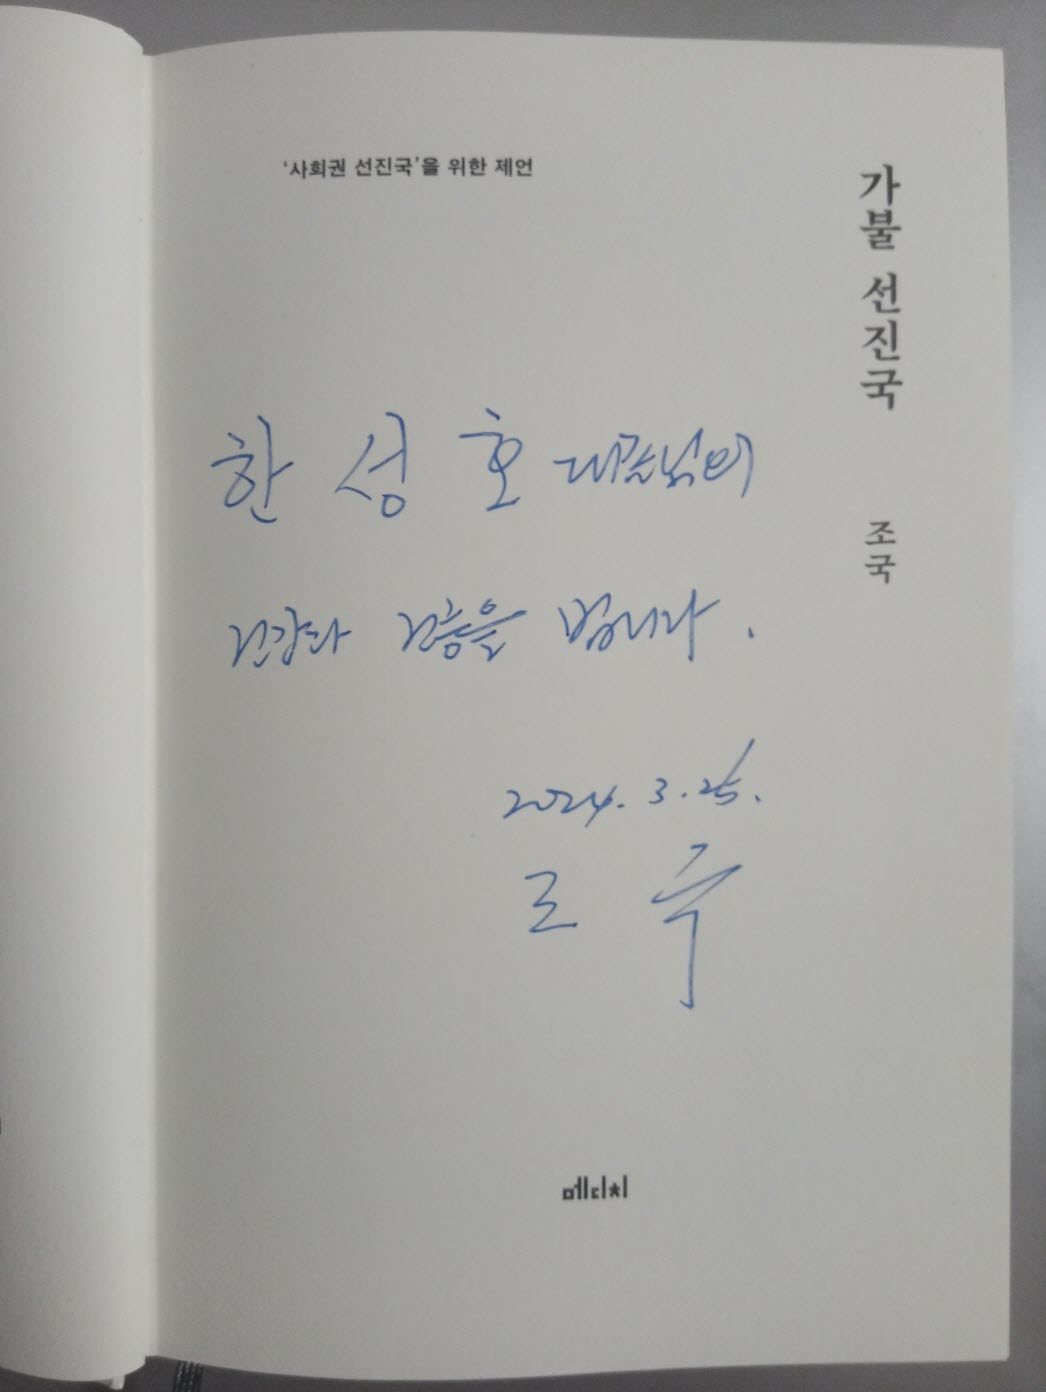 '사회권 선진국'을 위한 제언
가불 선진국
조국
한 성 호
건강과 건승을 빕니다.
2024. 3. 25.
조 국
메디치